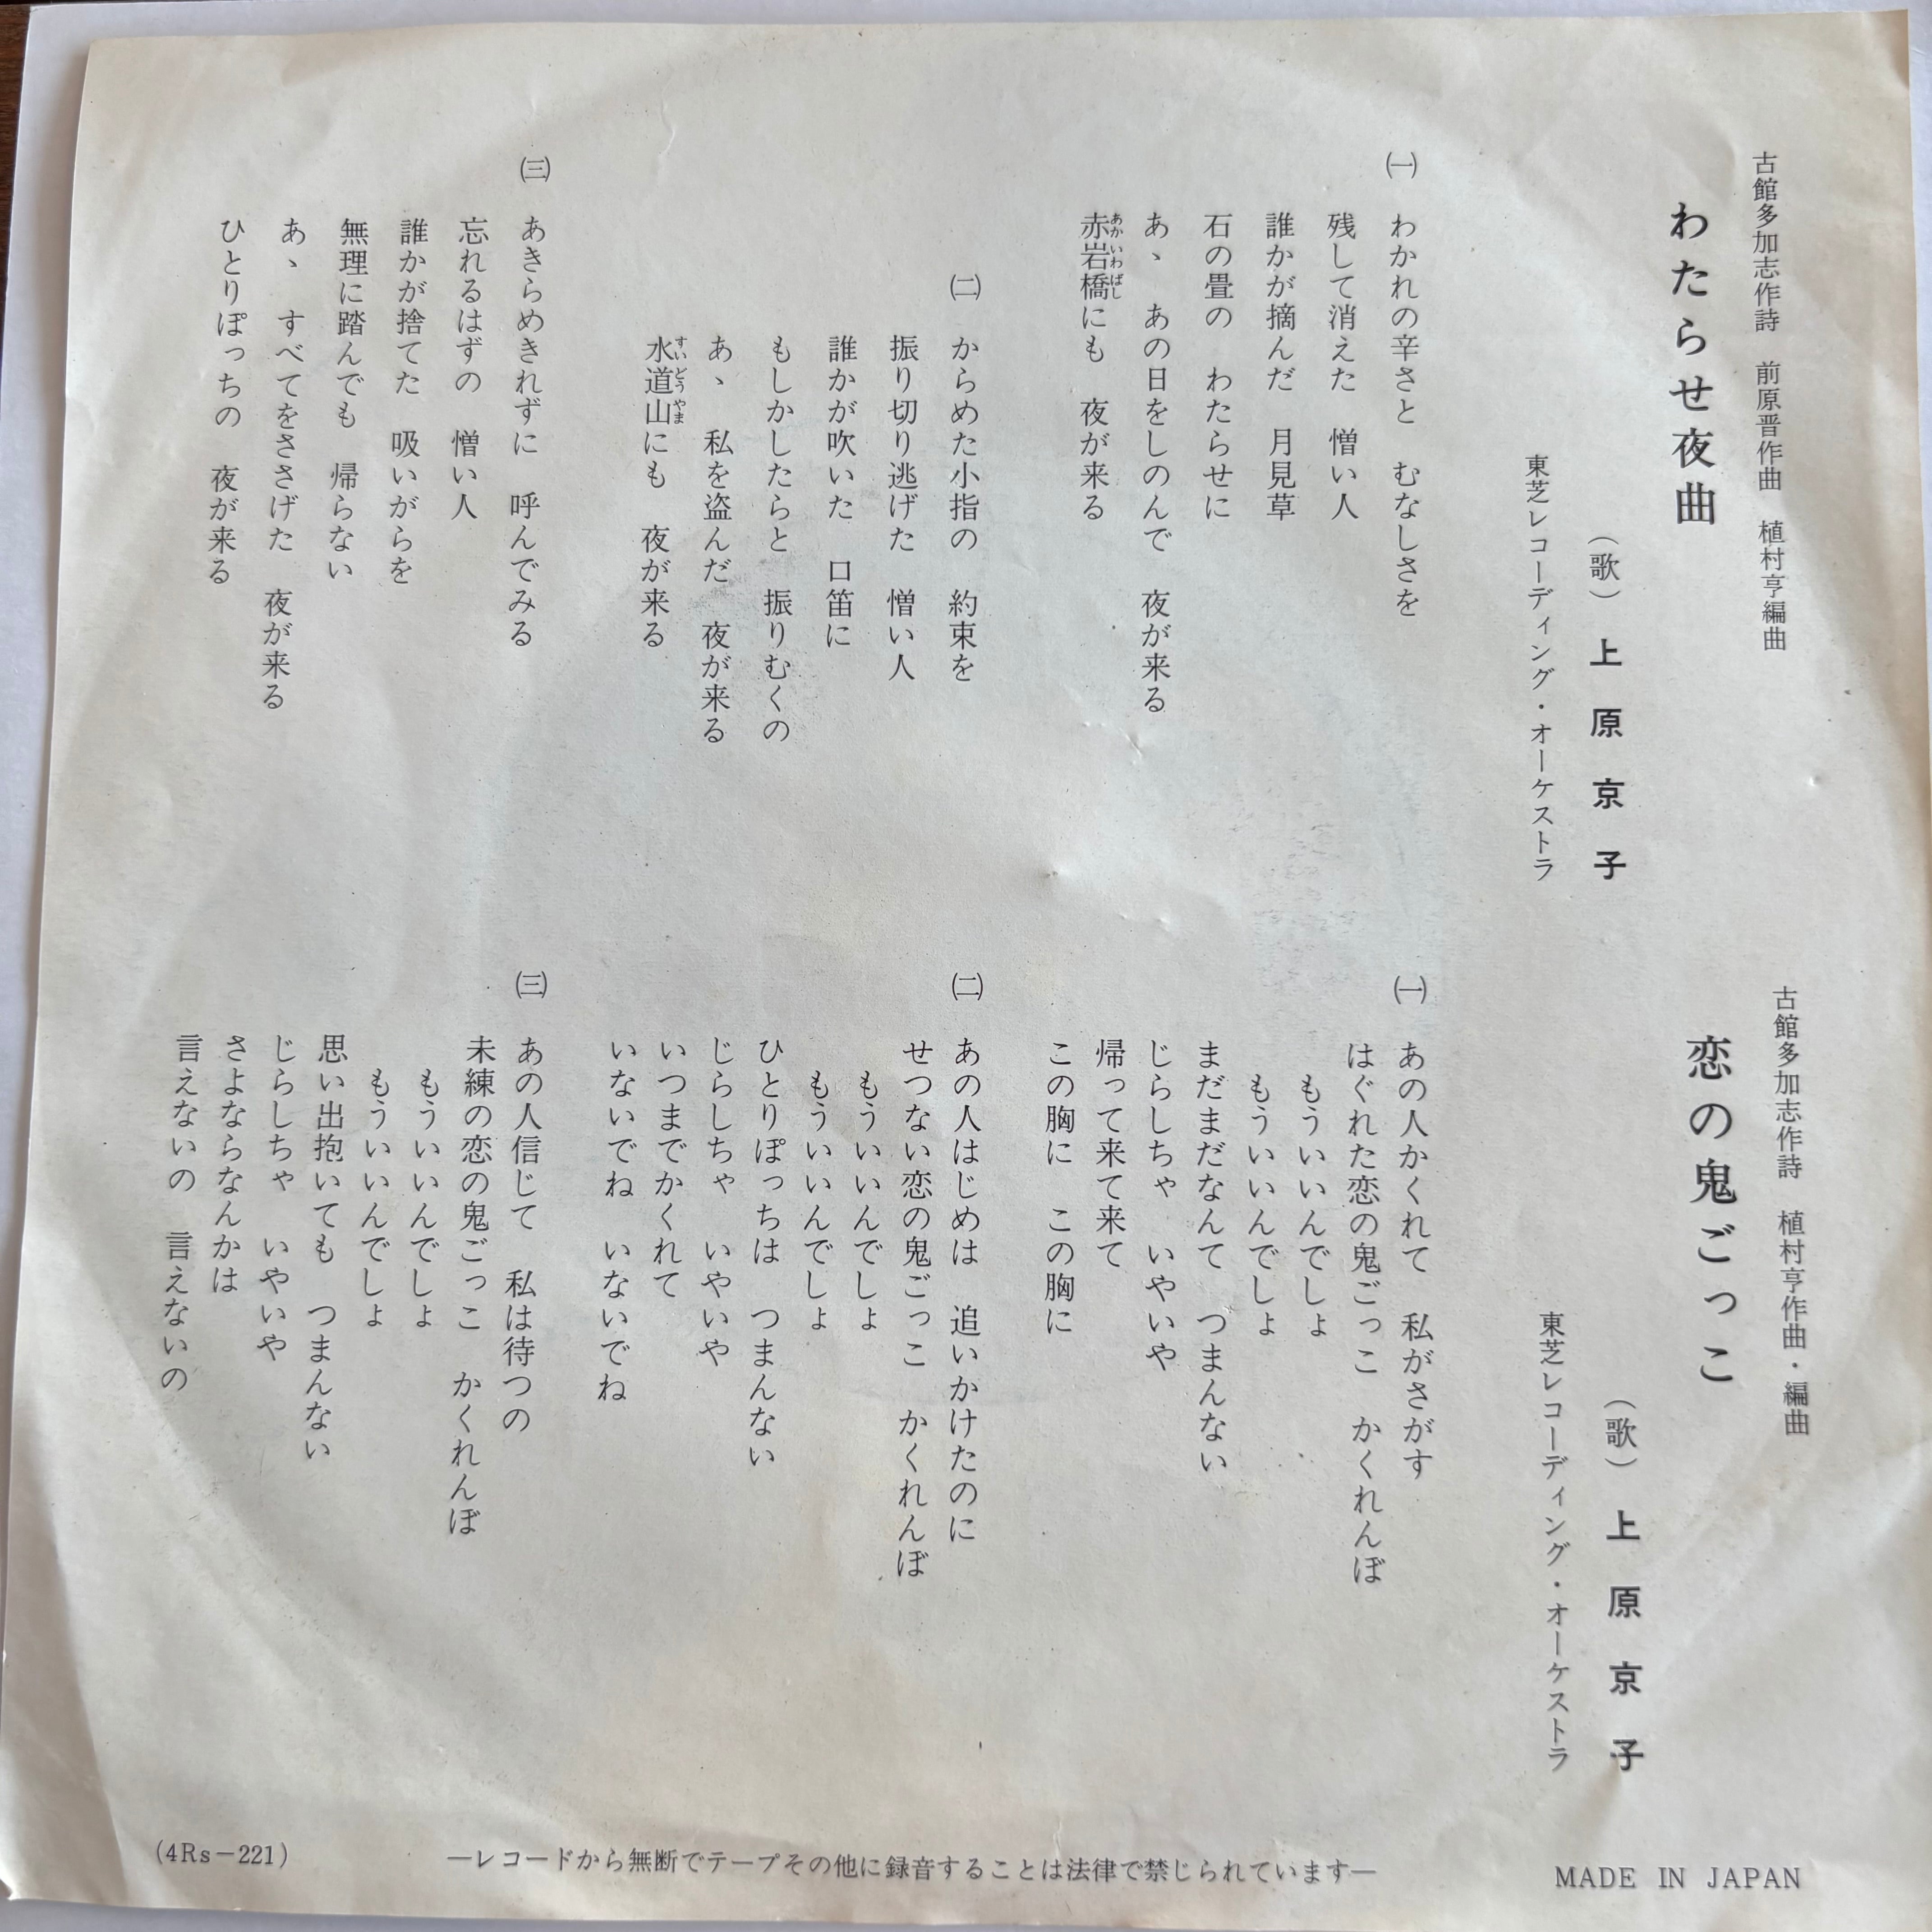 古館多加志作詩　前原晋作曲　植村亨編曲
わたらせ夜曲
（歌）上原京子
東芝レコーディング・オーケストラ
㈠　わかれの辛さと　むなしさを
残して消えた　憎い人
誰かが摘んだ　月見草
石の畳の　わたらせに
あゝ　あの日をしのんで　夜が来る
赤岩橋にも　夜が来る
あかいわばし
㈡　からめた小指の　約束を
振り切り逃げた　憎い人
誰かが吹いた　口笛に
もしかしたらと　振りむくの
あゝ　私を盗んだ　夜が来る
水道山にも　夜が来る
すいどうやま
㈢　あきらめきれずに　呼んでみる
忘れるはずの　憎い人
誰かが捨てた　吸いがらを
無理に踏んでも　帰らない
あゝ　すべてをささげた　夜が来る
ひとりぽっちの　夜が来る
古館多加志作詩　植村亨作曲・編曲
恋の鬼ごっこ
（歌）上原京子
東芝レコーディング・オーケストラ
㈠　あの人かくれて　私がさがす
はぐれた恋の鬼ごっこ　かくれんぼ
もういいんでしょ
もういいんでしょ
まだまだなんて　つまんない
じらしちゃ　いやいや
帰って来て来て
この胸に　この胸に
㈡　あの人はじめは　追いかけたのに
せつない恋の鬼ごっこ　かくれんぼ
もういいんでしょ
もういいんでしょ
ひとりぽっちは　つまんない
じらしちゃ　いやいや
いつまでかくれて
いないでね　いないでね
㈢　あの人信じて　私は待つの
未練の恋の鬼ごっこ　かくれんぼ
もういいんでしょ
もういいんでしょ
思い出抱いても　つまんない
じらしちゃ　いやいや
さよならなんかは
言えないの　言えないの
(4Rs－221)
―レコードから無断でテープその他に録音することは法律で禁じられています―
MADE IN JAPAN